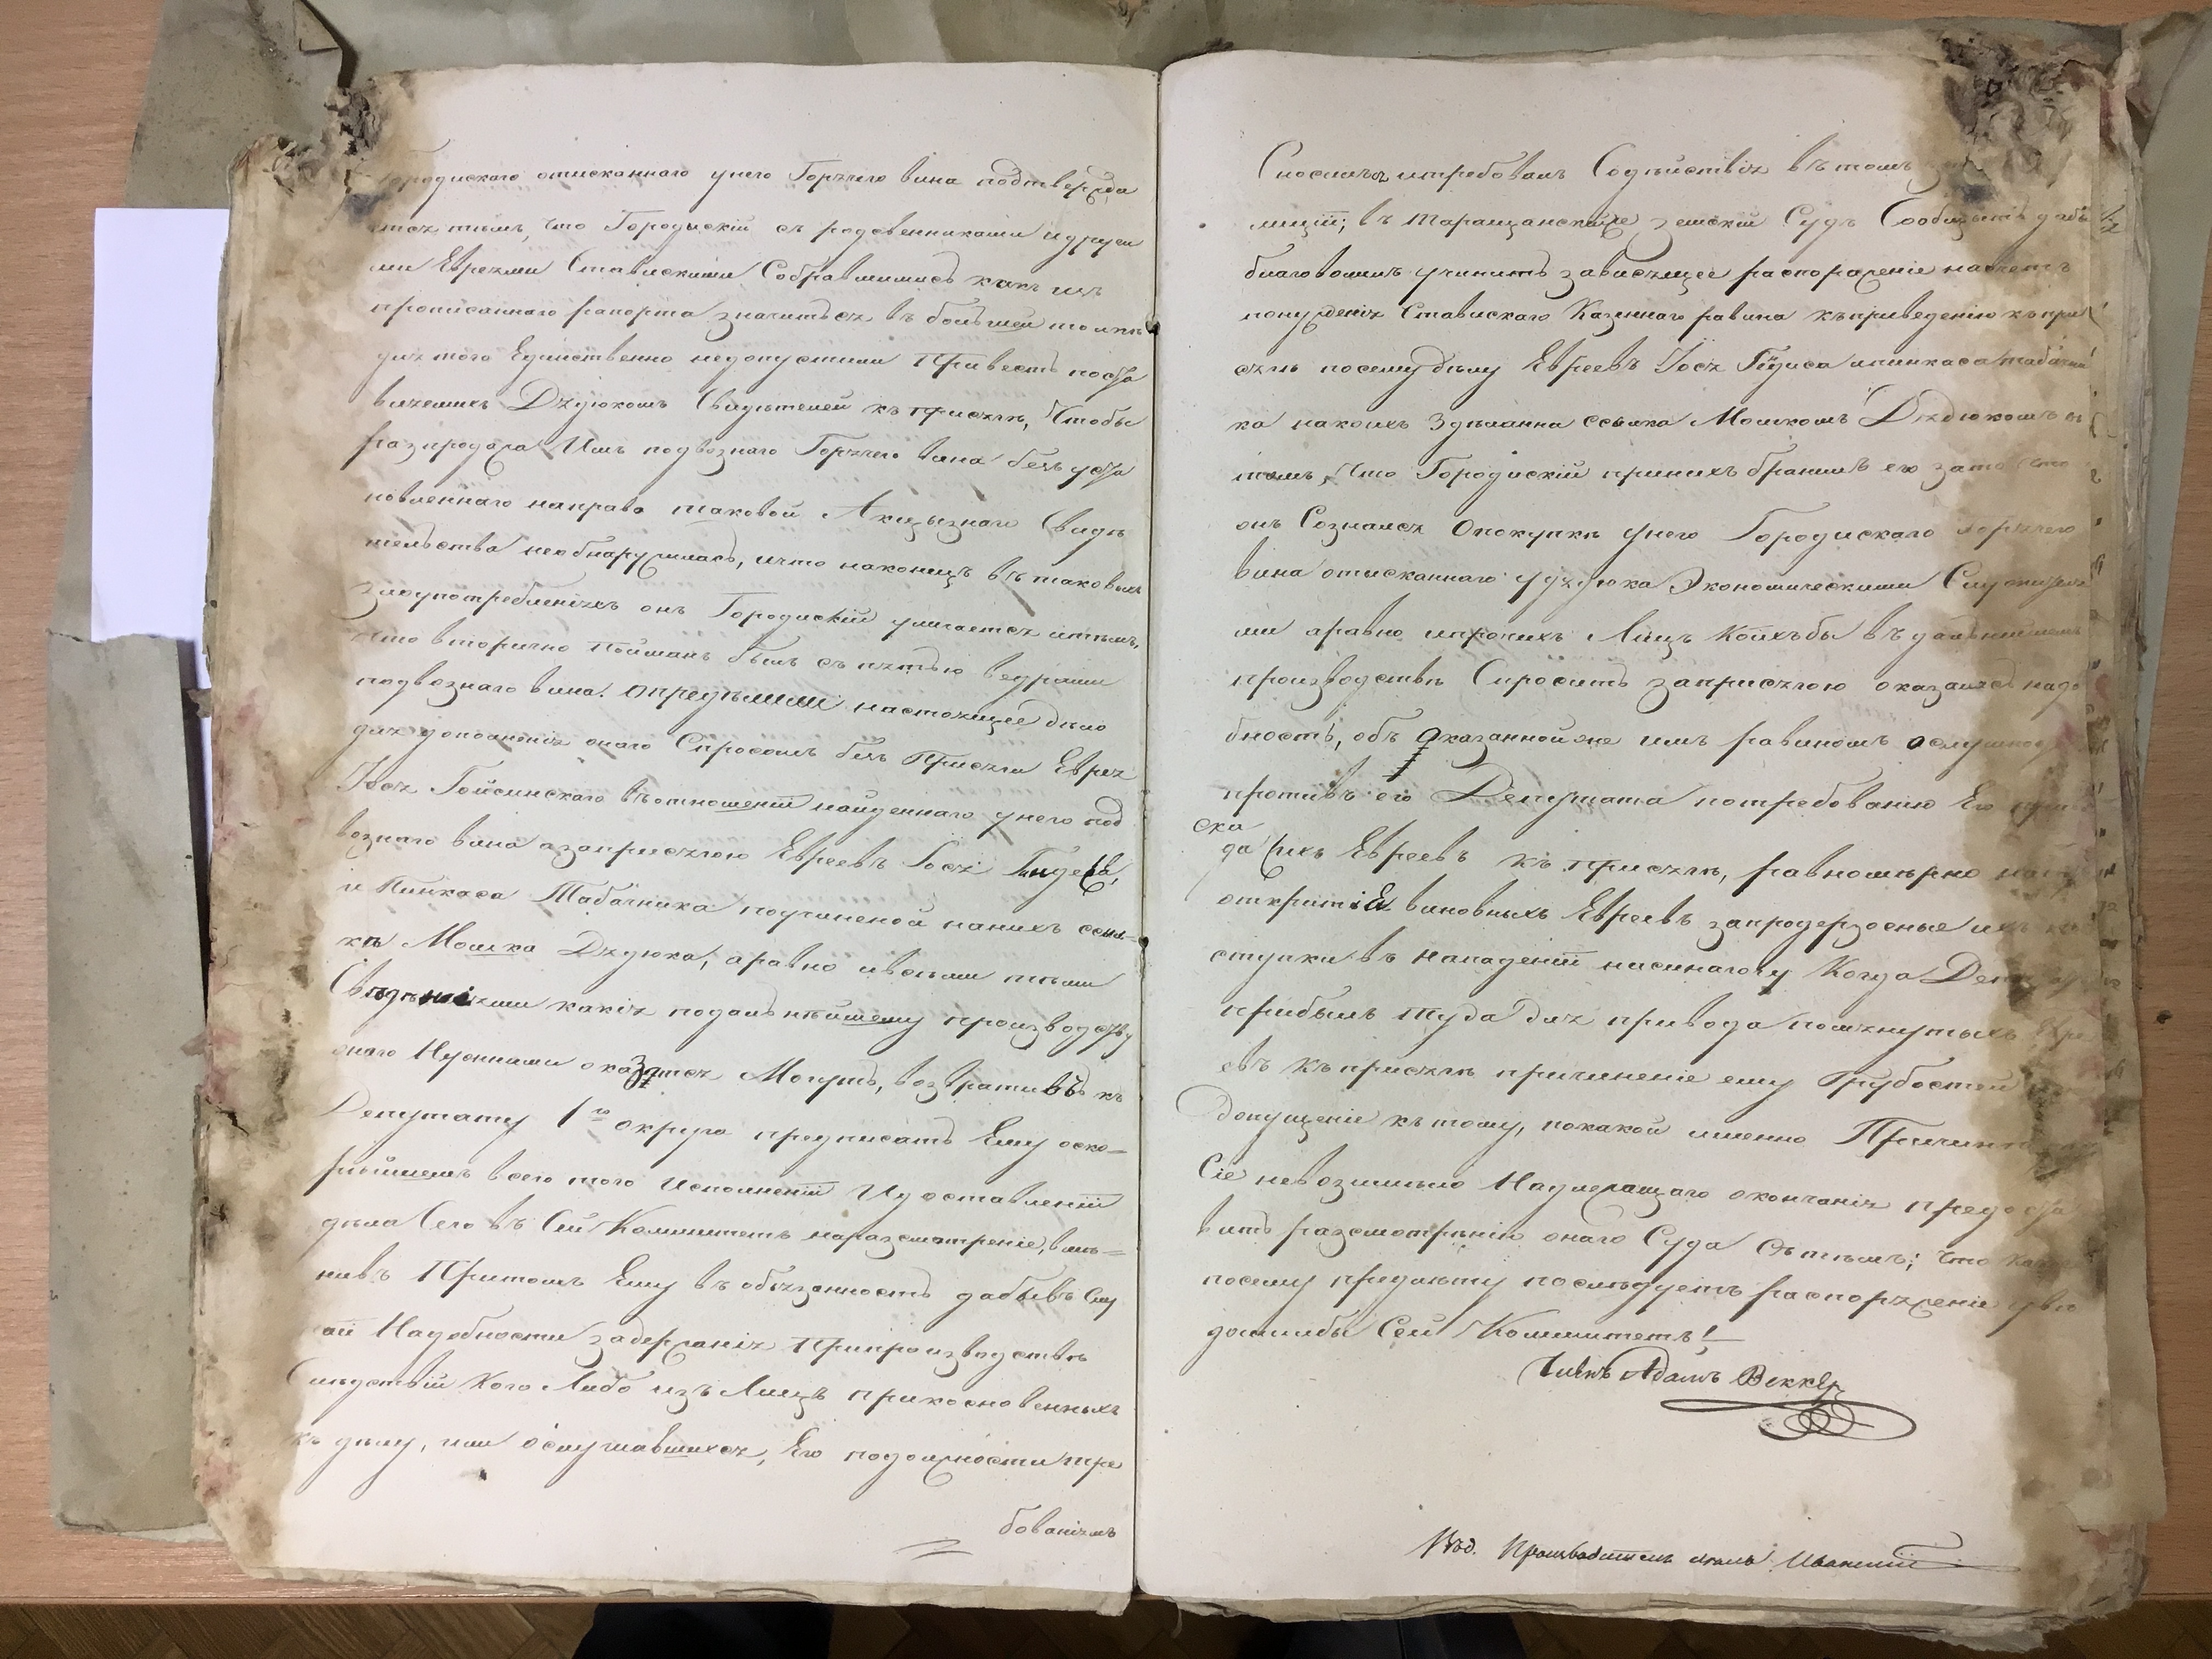 Городискаго отисканнаго унего Горячего вина подтвержда
ется тѣмъ, что Городискій съ родственниками идруги
ми Евреями Ставискими Собравшимись какъ изъ
прописаннаго рапорта значиться въ большей толпѣ
для того Единственно недопустили Привесть поста
вляемихъ Дядюкомъ Свидѣтелей къ присягѣ, Чтобы
разпродажа Имъ подвознаго Горячего вина безъ уста
новленнаго направо таковой Акцызнаго Свидѣ
тельства необнаружилась, ичто наконецъ въ таковыхъ
злоупотребленіяхъ онъ Городискій уличается итѣмъ,
что вторично Пойманъ былъ съ пятью ведрами
подвознаго вина. Опредѣлили настоящее дѣло
для дополненія онаго Спросомъ безъ Присяги Еврея
Іося Гойсинскаго въотношеніи найденнаго унего под
вознаго вина азаприсягою Евреевъ Іося
и Пинкаса Табачника подчиненой нанихъ ссыл-
кѣ Мошка Дядюка, аравно ивсѣми тѣми
Свѣденіями какія подальнѣйшему производству
онаго Нужними оказатся Могутъ, возвративъ къ
Депутату 1го округа предписать Ему оско-
рѣйшемъ всего того Исполненіи Идоставленіи
дѣла Сего въ Сей Коммитетъ наразсмотреніе, вмѣ-
нивъ Притомъ Ему въ обязанность дабывъ Слу
аи Надобности задержанія Припроизводствѣ
Слѣдствій Кого Либо изъ Лицъ прикосновенныхъ
къ дѣлу, или ослушавшихся, Его подолжности тре
бованіямъ
Сносился итребовалъ Содѣйствія вътомъ
лиціи; въ Таращанскій земскій Судъ Сообщить дабы
благоволилъ учинить зависящее распоряженіе насчетъ
понужденія Ставискаго Казеннаго равина къприведенію къпри
сягѣ посему дѣлу Евреевъ Іося ипинкаса табачни
ка накоихъ Здѣланна ссылка Мошкомъ Дядюкомъ въ
томъ, Что Городискій принихъ бранилъ его зато что
онъ Сознался Опокупкѣ унего Городискаго горячего
вина отысканнаго уДядюка Экономическими Служителя
ми аравно ипрочихъ Лицъ Коихъбы въ дальнѣйшемъ
производствѣ Спросить заприсягою оказалась надо
бность, объ Оказанной же имъ равиномъ ослушно
противъ его Депутата потребованію Его
ска
да Сихъ Евреевъ къ присягѣ, равномѣрно
открытіе виновныхъ Евреевъ запродерзосные ихъ
ступки въ нападеніи насинагогу Когда Деп
прибылъ туда для привода помянутыхъ Евре
евъ къприсягѣ причиненіе ему Грубостей
Допущеніе къ тому, покакой именно Причинѣ
Сіе невозимѣло Надлежащаго окончанія предоста
вить разсмотрѣнію онаго Суда Сътѣмъ; что
посему предмѣту послѣдуетъ распоряженіе уве
домилбы Сей Коммитетъ!
Членъ Адамъ Веккер
Производитель